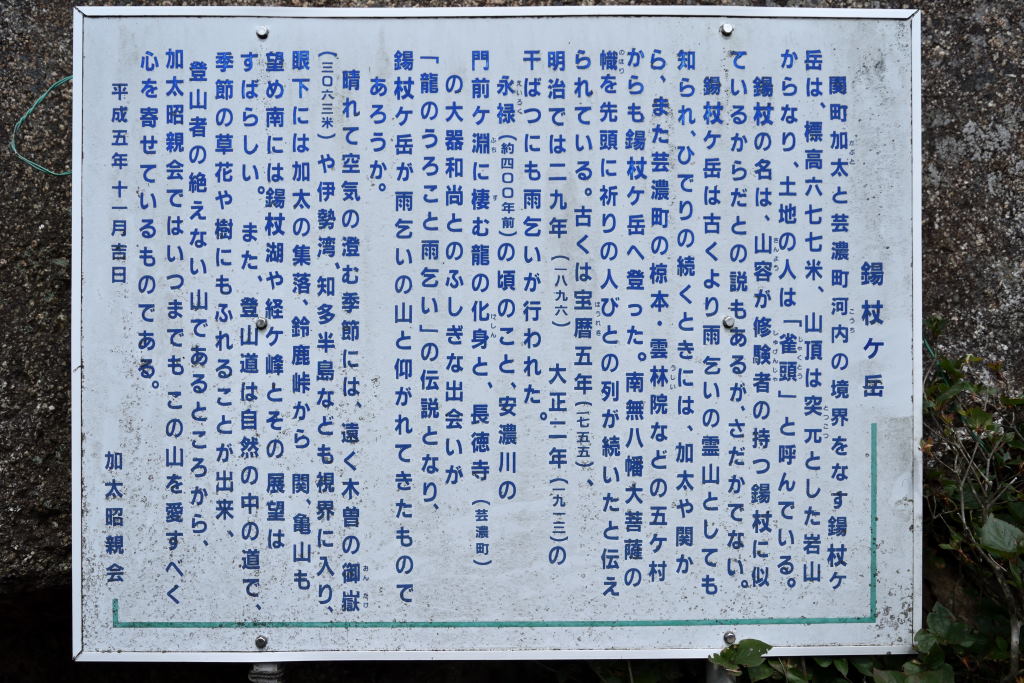 錫杖ケ岳
関町加太と芸濃町河内の境界をなす錫杖ケ
岳は、標高六七七米、山頂は突元とした岩山
からなり、土地の人は「雀頭」と呼んでいる。
錫杖の名は、山容が修験者の持つ錫杖に似
ているからだとの説もあるが、さだかでない。
錫杖ケ岳は古くより雨乞いの霊山としても
知られ、ひでりの続くときには、加太や関か
ら、また芸濃町の椋本・雲林院などの五ケ村
からも錫杖ケ岳へ登った。南無八幡大菩薩の
幟を先頭に祈りの人びとの列が続いたと伝え
られている。古くは宝暦五年(一七五五)、
明治では二九年(一八九六)大正二年(一九一三)の
干ばつにも雨乞いが行われた。
永禄(約四〇〇年前)の頃のこと、安濃川の
門前ケ淵に棲む龍の化身と、長徳寺(芸濃町)
の大器和尚とのふしぎな出会いが
「龍のうろこと雨乞い」の伝説となり、
錫杖ケ岳が雨乞いの山と仰がれてきたもので
あろうか。
晴れて空気の澄む季節には、遠く木曽の御嶽
(三〇六三米)や伊勢湾、知多半島なども視界に入り、
眼下には加太の集落、鈴鹿峠から 関、亀山も
望め南には錫杖湖や経ケ峰とその 展望は
すばらしい。また、登山道は自然の中の道で、
季節の草花や樹にもふれることが出来、
登山者の絶えない山であるところから、
加太昭親会ではいつまでも この山を愛すべく
心を寄せているものである。
平成五年十一月吉日
加太昭親会